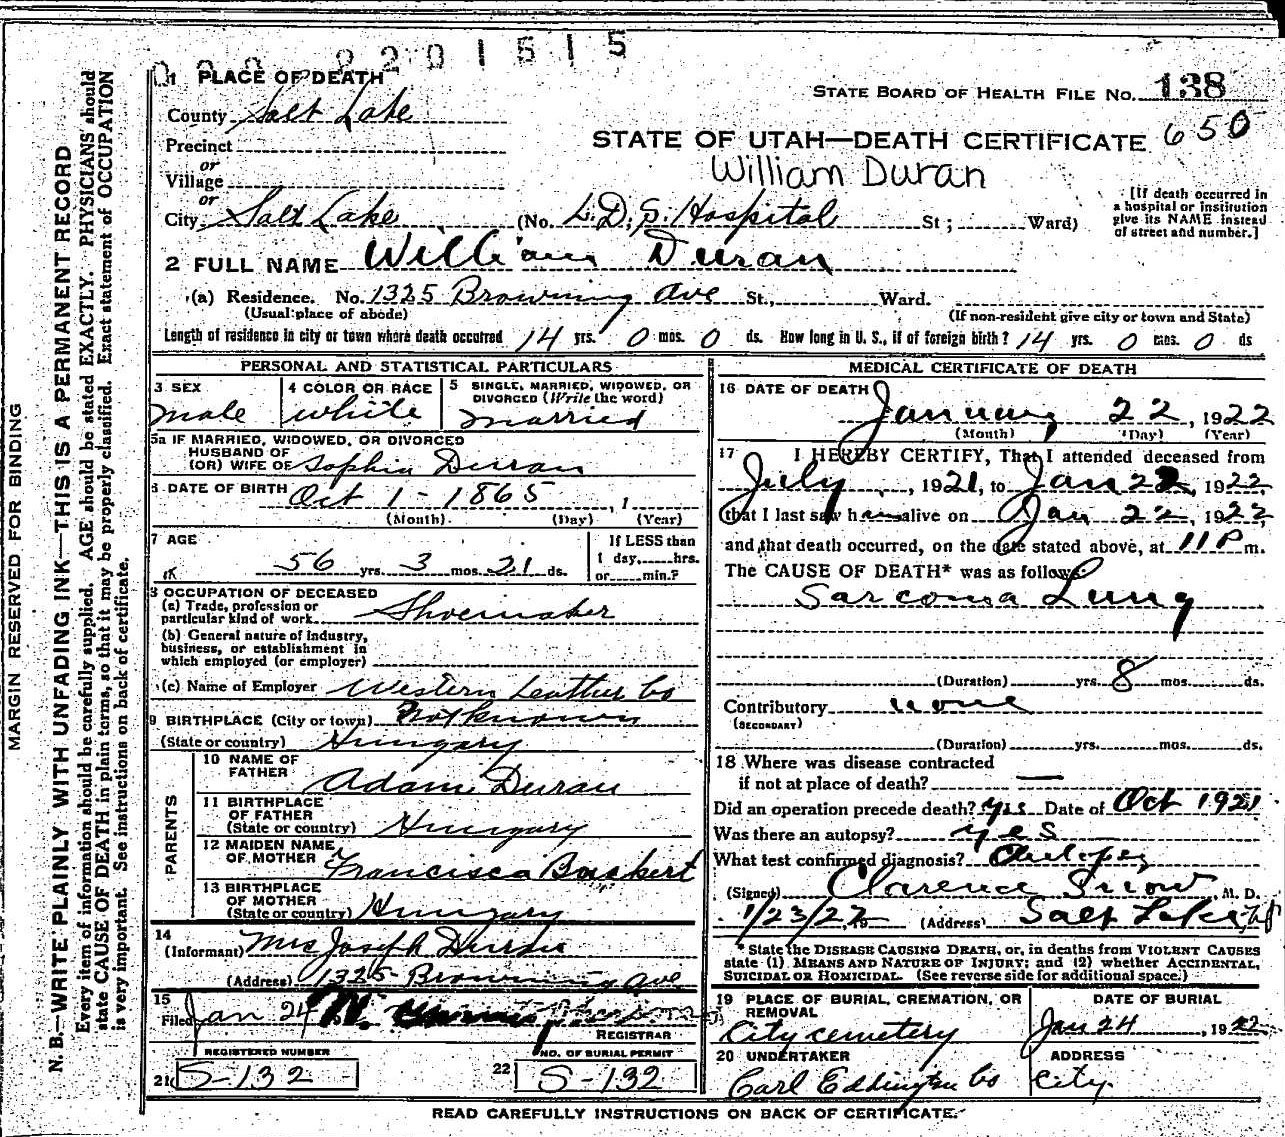 2201515
1 PLACE OF DEATH
STATE BOARD OF HEALTH FILE No. 138
County Salt Lake
650
STATE OF UTAH—DEATH CERTIFICATE
Precinct
or
Village
William Duran
or
City Salt Lake (No. L.D.S. Hospital St; Ward)
[If death occurred in
a hospital or institution
give its NAME instead
of street and number.]
2 FULL NAME William Duran
(a) Residence. No. 1325 Browning Ave St., Ward.
(Usual place of abode) (If non-resident give city or town and State)
Length of residence in city or town where death occurred 14 yrs. 0 mos. 0 ds. How long in U. S., if of foreign birth? 14 yrs. 0 mos. 0 ds
PERSONAL AND STATISTICAL PARTICULARS
3 SEX
male
4 COLOR OR RACE
white
5 SINGLE, MARRIED, WIDOWED, OR
DIVORCED (Write the word)
married
5a IF MARRIED, WIDOWED, OR DIVORCED
HUSBAND OF
(OR) WIFE OF Sophia Duran
6 DATE OF BIRTH Oct 1 - 1865, 1
(Month) (Day) (Year)
7 AGE
56 yrs. 3 mos. 21 ds.
If LESS than
1 day, hrs.
or min.?
8 OCCUPATION OF DECEASED
(a) Trade, profession or
particular kind of work Shoemaker
(b) General nature of industry,
business, or establishment in
which employed (or employer)
(c) Name of Employer Western Leather Co
9 BIRTHPLACE (City or town) Not known
(State or country) Hungary
PARENTS
10 NAME OF
FATHER Adam Duran
11 BIRTHPLACE
OF FATHER
(State or country) Hungary
12 MAIDEN NAME
OF MOTHER Francisca
13 BIRTHPLACE
OF MOTHER
(State or country) Hungary
14
(Informant) Mrs Joseph
(Address) 1325 Browning Ave
15
Filed Jan 24
REGISTRAR
REGISTERED NUMBER
21 S-132
NO. OF BURIAL PERMIT
22 S-132
MEDICAL CERTIFICATE OF DEATH
16 DATE OF DEATH
January 22, 1922
(Month) (Day) (Year)
17 I HEREBY CERTIFY, That I attended deceased from
July, 1921, to Jan 22, 1922,
that I last saw him alive on Jan 22, 1922,
and that death occurred, on the date stated above, at 11 P m.
The CAUSE OF DEATH* was as follows:
Sarcoma Lung
(Duration) yrs. 8 mos. ds.
Contributory none
(SECONDARY)
(Duration) yrs. mos. ds.
18 Where was disease contracted
if not at place of death? —
Did an operation precede death? yes Date of Oct 1921
Was there an autopsy? yes
What test confirmed diagnosis? Autopsy
(Signed) Clarence Snow M. D.
1/23/22, 19 (Address) Salt Lake
*State the DISEASE CAUSING DEATH, or, in deaths from VIOLENT CAUSES
state (1) MEANS AND NATURE OF INJURY; and (2) whether ACCIDENTAL,
SUICIDAL OR HOMICIDAL. (See reverse side for additional space.)
19 PLACE OF BURIAL, CREMATION, OR
REMOVAL
City cemetery
DATE OF BURIAL
Jan 24, 1922
20 UNDERTAKER
Carl Eddington Co
ADDRESS
City
READ CAREFULLY INSTRUCTIONS ON BACK OF CERTIFICATE.
MARGIN RESERVED FOR BINDING
N. B.—WRITE PLAINLY WITH UNFADING INK—THIS IS A PERMANENT RECORD
Every item of information should be carefully supplied. AGE should be stated EXACTLY. PHYSICIANS should
state CAUSE OF DEATH in plain terms, so that it may be properly classified. Exact statement of OCCUPATION
is very important. See instructions on back of certificate.